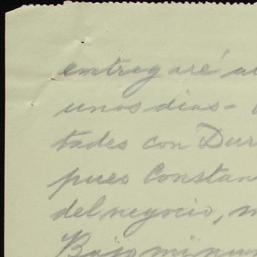 entregaré a
unos dias-
tades con Dur
pues Constan
del negocio, m
Bajo minu